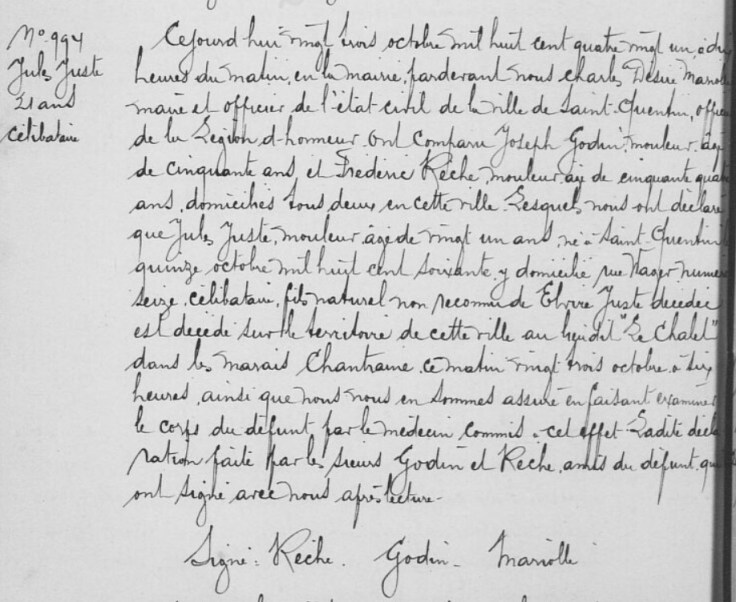 No 994
Jules Juste
21 ans
célibataire
Cejourd'hui vingt trois octobre mil huit cent quatre vingt un, à dix
heures du matin, en la mairie, pardevant nous Charles Désiré Mariolle
maire et officier de l'état civil de la ville de Saint-Quentin, officier
de la Légion d'honneur, ont comparu Joseph Godin, mouleur, âgé
de cinquante ans, et Frédéric Reche, mouleur, âgé de cinquante quatre
ans, domiciliés tous deux en cette ville. Lesquels nous ont déclaré
que Jules Juste, mouleur, âgé de vingt un ans, né à Saint-Quentin
quinze octobre mil huit cent soixante, y domicilié rue Nager numéro
seize, célibataire, fils naturel non reconnu de Elvire Juste décédée
est décédé sur le territoire de cette ville au lieudit "Le Chalet"
dans les marais Chantraine, ce matin vingt trois octobre à six
heures, ainsi que nous nous en sommes assuré en faisant examiner
le corps du défunt par le médecin commis à cet effet. Ladite décla
ration faite par les sieurs Godin et Reche, amis du défunt, qui
ont signé avec nous après lecture.
Signé: Reche. Godin. Mariolle